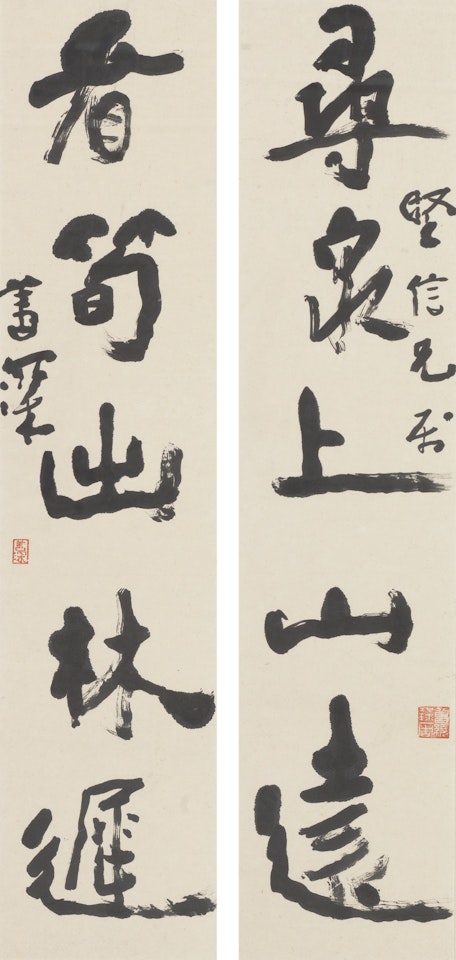 尋泉上山遠
堅信兄属
看筍出林遲
善深